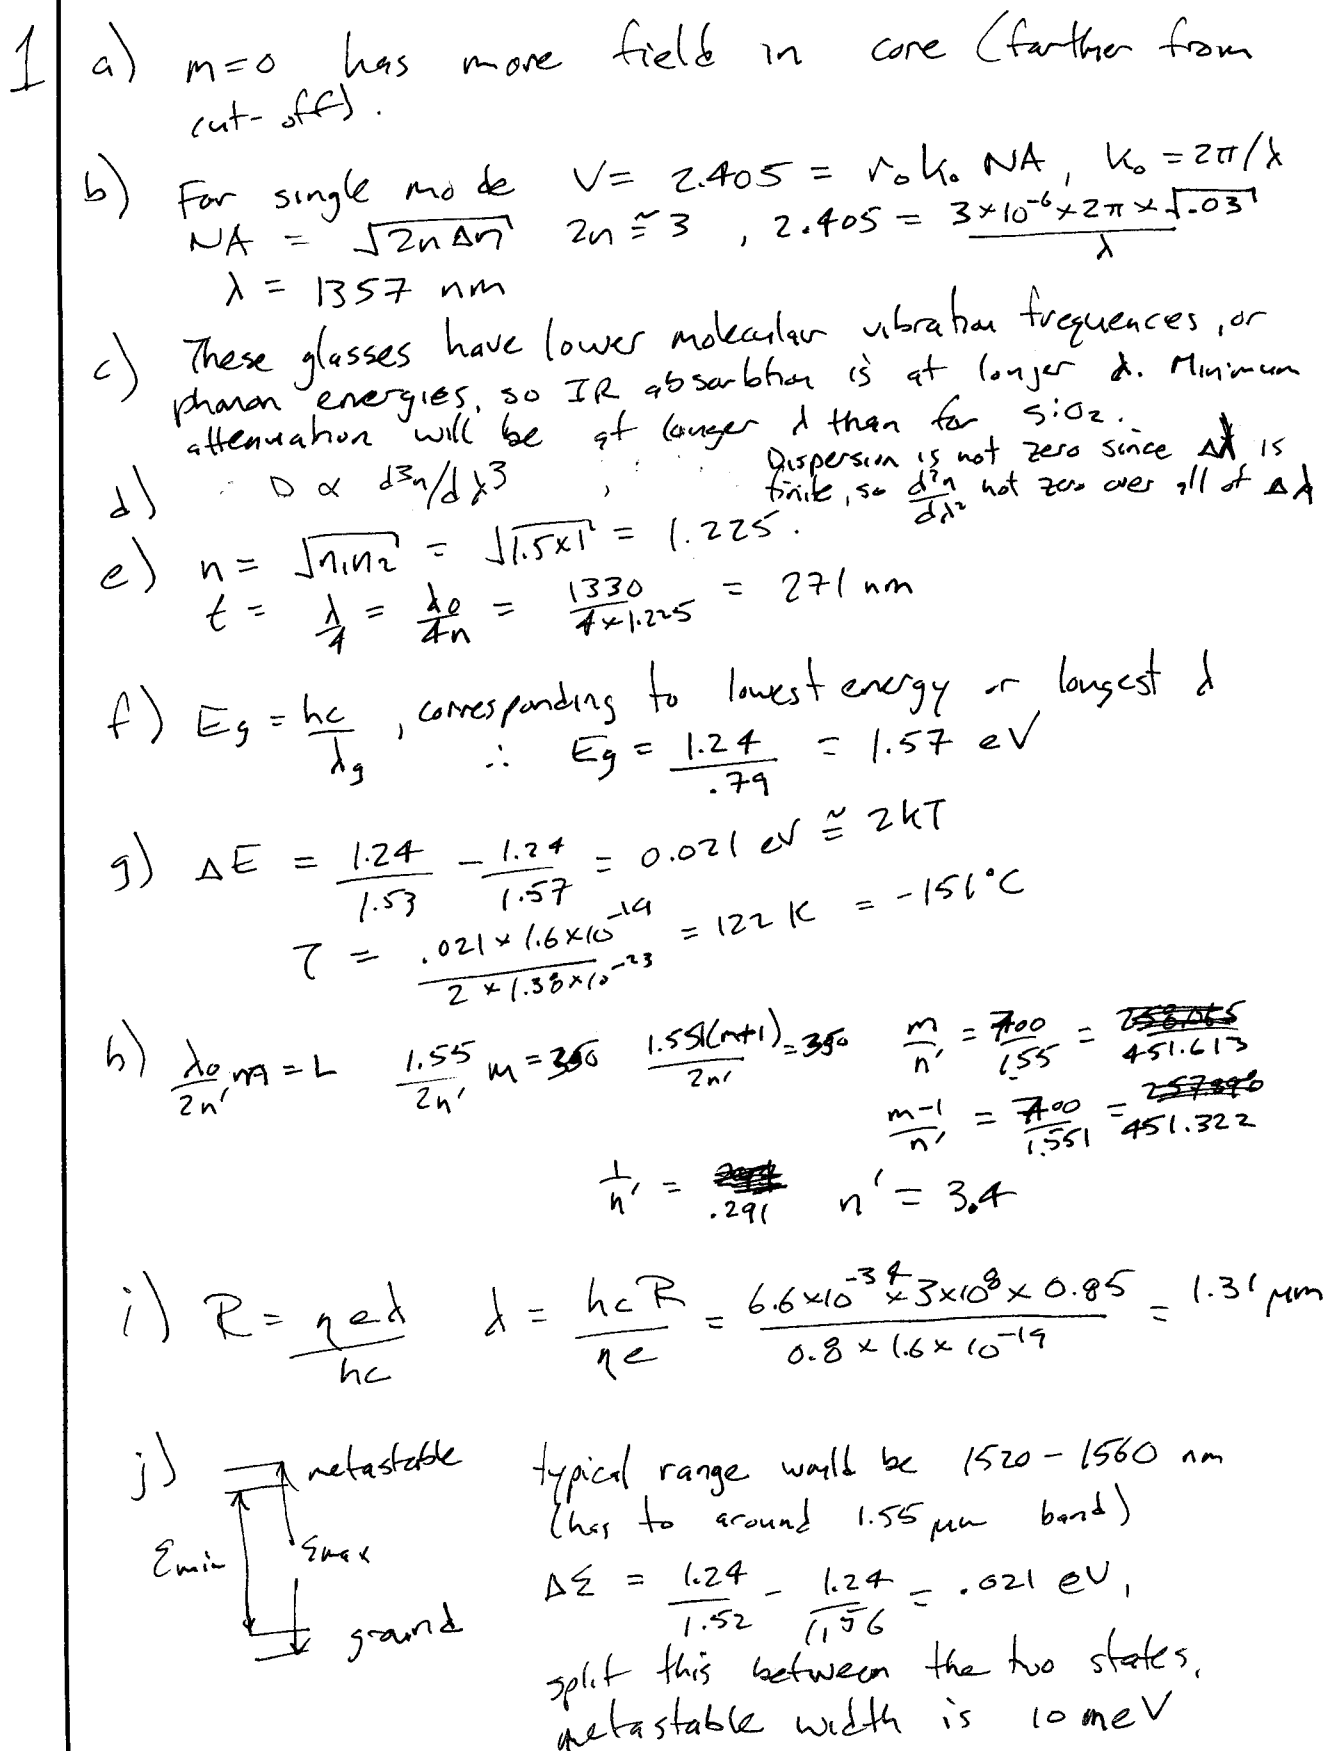 1 a) m=0 has more field in core (farther from
cut-off).
b) For single mode V = 2.405 = r₀k₀ NA, k₀ = 2π/λ
NA = √2nΔn 2n ≅ 3, 2.405 = 3×10⁻⁶×2π×√.03 / λ
λ = 1357 nm
c) These glasses have lower molecular vibration frequences, or
phonon energies, so IR absorbtion is at longer λ. Minimum
attenuation will be at longer λ than for SiO₂.
d) D ∝ d³n/dλ³, Dispersion is not zero since Δλ is
finite, so d²n/dλ² not zero over all of Δλ
e) n = √n₁n₂ = √1.5×1 = 1.225.
t = λ/4 = λ₀/4n = 1330/4×1.225 = 271 nm
f) Eg = hc/λg, corresponding to lowest energy or longest λ
∴ Eg = 1.24/.79 = 1.57 eV
g) ΔE = 1.24/1.53 - 1.24/1.57 = 0.021 eV ≅ 2kT
T = .021×1.6×10⁻¹⁹ / 2×1.38×10⁻²³ = 122 K = -151°C
h) λ₀/2n' m = L 1.55/2n' m = 350 1.551(m+1)/2n' = 350 m/n' = 700/1.55 = 451.613
m-1/n' = 700/1.551 = 451.322
1/n' = .291 n' = 3.4
i) R = ηeλ/hc λ = hcR/ηe = 6.6×10⁻³⁴×3×10⁸×0.85 / 0.8×1.6×10⁻¹⁹ = 1.31 μm
j) metastable typical range would be 1520-1560 nm
(has to around 1.55 μm band)
Emin Emax ΔE = 1.24/1.52 - 1.24/1.56 = .021 eV,
ground
split this between the two states,
metastable width is 10 meV